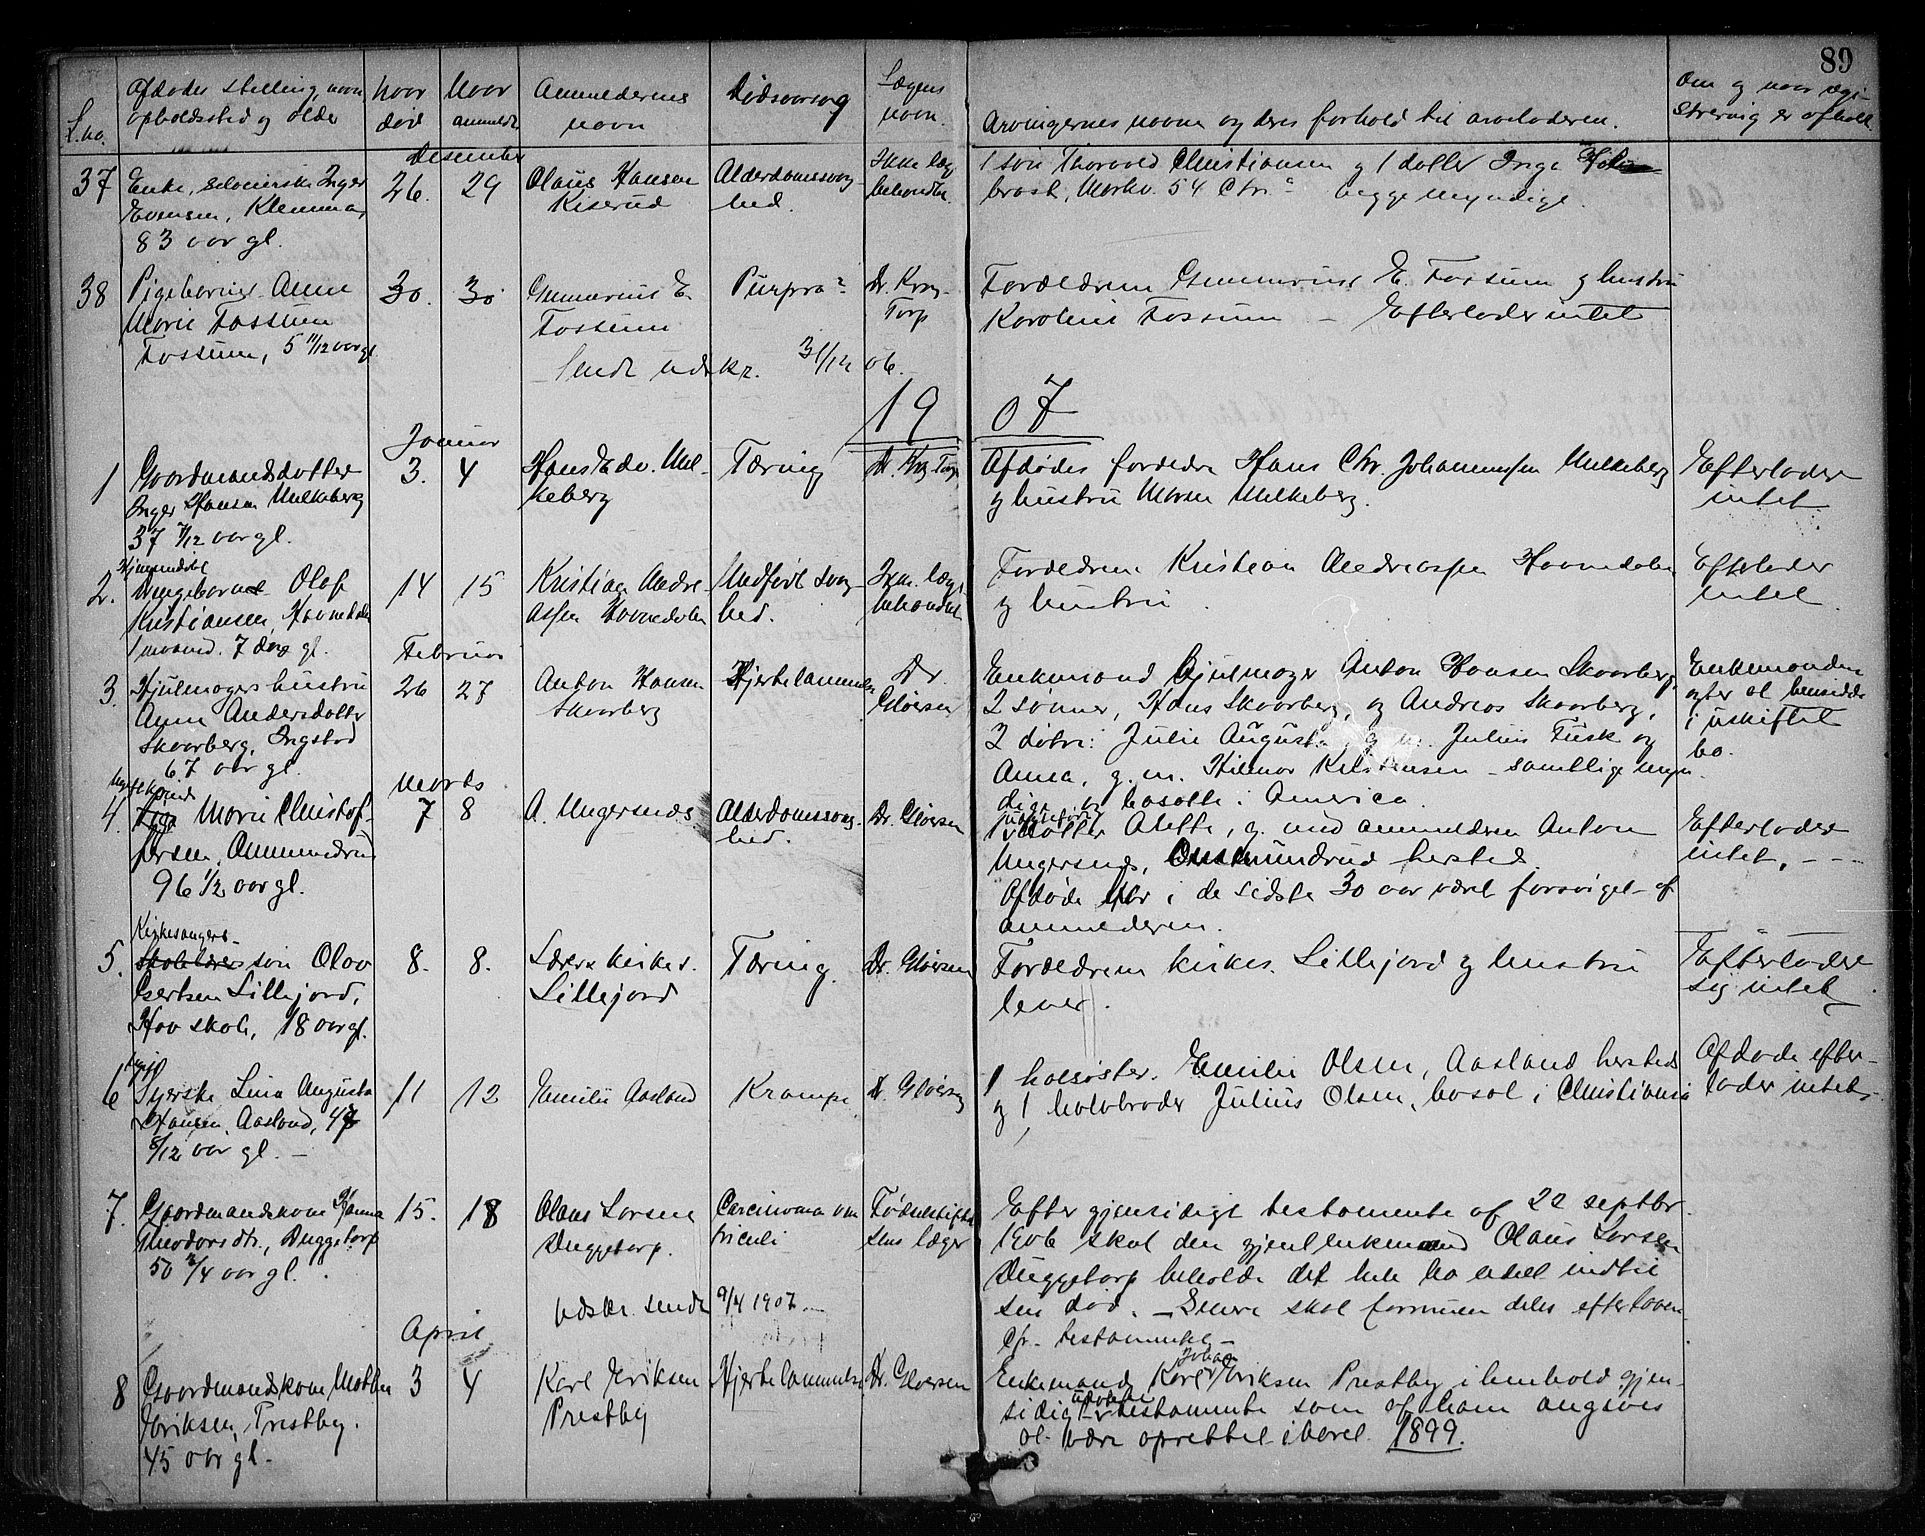 89
L.no.
Afdødes stilling, navn
opholdssted og alder
Naar
død
Naar
anmeldt
Anmelderens
navn
Dødsaarsag
Lægens
navn.
Arvingernes navne og deres forhold til arveladeren.
Om og naar regi-
strering er afholdt
Desember
37
Enke, Inger
Evensen,
83 aar gl.
26.
29
Olaus Hansen
Kiserud
Alderdomssvag-
hed.
Ikke læge
behandlet
1 søn Thorvald Christiansen og 1 datter Inga
54 Chr.a begge myndige.
38
Pigebarnet Anne
Marie Fossum
Fossum, 5 11/12 aar gl
30.
30
Gunnarius E.
Fossum
Purpra?
Dr. Krag-
Torp
Forældrene Gunnarius E. Fossum og hustru
Karoline Fossum – Efterlader intet
Sendt udskr. 31/12 06.
1907
Januar
1
Gaardmandsdatter
Inger Hansen Melkeberg
37 7/12 aar gl.
3.
4
Hans Edv. Mel-
keberg
Tæring
Dr. Krag-Torp
Afdødes forældre Hans Chr. Johannessen Melkeberg
og hustru Maren Melkeberg.
Efterlader
intet
2.
Olaf
Kristiansen, Havnedalen
1 maaned. 7 dage gl.
14
15
Kristian Andre-
assen Havnedalen
Medfødt svag-
hed.
Ikke læge
behandlet
Forældrene Kristian Andreassen Havnedalen
og hustru.
Efterlader
intet.
Februar
3.
Hjulmagers hustru
Anne Andersdatter
Skaarberg, Ingstad
67 aar gl.
26
27
Anton Hansen
Skaarberg
Hjertelammelse
Dr.
Gløersen
Enkemand Hjulmager Anton Hansen Skaarberg,
2 sønner, Hans Skaarberg, og Andreas Skaarberg,
2 døtre: Julie Augusta, g. m. Julius Fusk og
Anna, g. m. Hilmar Kristiansen – samtlige myn-
dige og bosatte i America.
Enkemanden
agter at hensidde
i uskiftet
bo.
Marts
4.
Marie Christof-
fersen, Ommundrud
96 1/2 aar gl.
7
8
A. Ungersnæs
Alderdomssvag-
hed.
Dr. Gløersen
1 datter Alette, g. med anmelderen Anton
Ungersnæs, Ommundrud hersted.
Afdøde har i de sidste 30 aar været forsørget af
anmelderen.
Efterlader
intet. – – –
5.
Kirkesangers-
skolelærers søn Olav
Gertsen Lillejord,
Hov skole, 18 aar gl.
8.
8.
Lærer kirkes.
Lillejord
Tæring.
Dr. Gløersen
Forældrene kirkes. Lillejord og hustru
lever.
Efterlader
sig intet
6
Syerske Lina Augusta
Hansen, Aasland, 47
8/12 aar gl. –
11
12
Emilie Aasland
Krampe
Dr. Gløersen
1 halvsøster. Emilie Olsen, Aasland hersteds
og 1 halvbroder Julius Olsen, bosat i Christiania
Afdøde efter-
lader intet.
7.
Gaardmandskone Hanna
Theodorsdtr., Duggetorp
50 3/4 aar gl.
15.
18
Olaus Larsen
Duggetorp.
Carcinoma ven
triculi
Fødselsstiftel-
sens læger
Efter gjensidigt testamente af 22 septbr.
1906 skal den gjenl. enkemand Olaus Larsen
Duggetorp beholde det hele bo udelt indtil
sin død. – Senere skal formuen deles efter loven
cfr. testamentet –
Udskr. sendt 9/4 1907.
April
8
Gaardmandskone Mathea
Eriksen, Prestby.
45 aar gl.
3
4
Karl Eriksen
Prestby
Hjertelammelse
Dr. Gløersen
Enkemand Karl Johan Eriksen Prestby i henhold gjen-
sidigt testamente som af ham angives
at være oprettet i 1899.